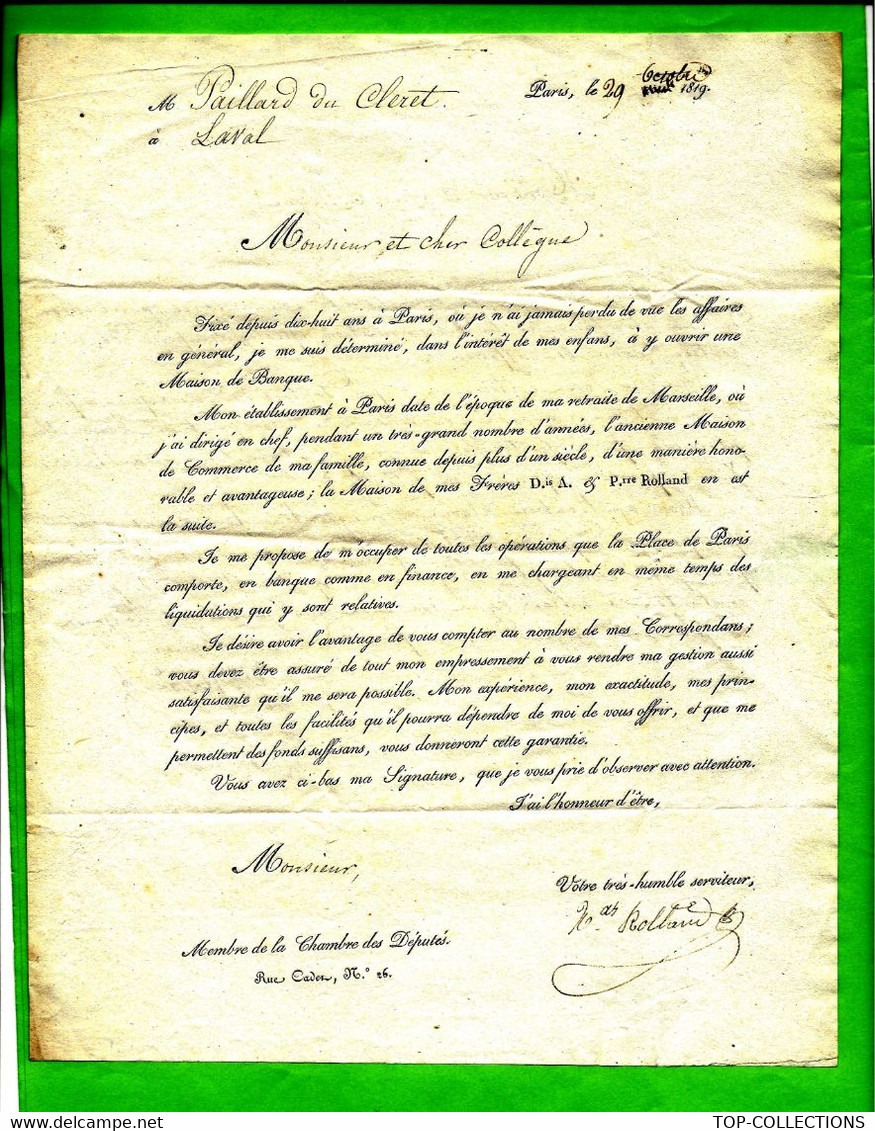 M Paillard du Cleret.
à Laval
Paris, le 29 Octobre 1819.
Monsieur et cher Collègue
Fixé depuis dix-huit ans à Paris, où je n'ai jamais perdu de vue les affaires
en général, je me suis déterminé, dans l'intérêt de mes enfans, à y ouvrir une
Maison de Banque.
Mon établissement à Paris date de l'époque de ma retraite de Marseille, où
j'ai dirigé en chef, pendant un très-grand nombre d'années, l'ancienne Maison
de Commerce de ma famille, connue depuis plus d'un siècle, d'une manière hono-
rable et avantageuse; la Maison de mes Frères D.is A. & P.rre Rolland en est
la suite.
Je me propose de m'occuper de toutes les opérations que la Place de Paris
comporte, en banque comme en finance, en me chargeant en même temps des
liquidations qui y sont relatives.
Je désire avoir l'avantage de vous compter au nombre de mes Correspondans;
vous devez être assuré de tout mon empressement à vous rendre ma gestion aussi
satisfaisante qu'il me sera possible. Mon expérience, mon exactitude, mes prin-
cipes, et toutes les facilités qu'il pourra dépendre de moi de vous offrir, et que me
permettent des fonds suffisans, vous donneront cette garantie.
Vous avez ci-bas ma Signature, que je vous prie d'observer avec attention.
J'ai l'honneur d'être,
Monsieur,
Votre très-humble serviteur,
Rolland
Membre de la Chambre des Députés.
Rue Cadet, N.° 26.
TOP-COLLECTIONS